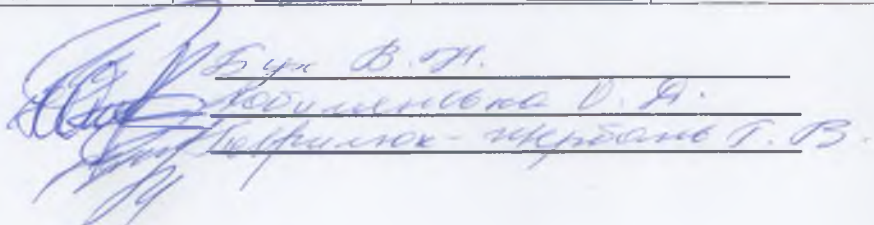 Бук В.Н.
Кобилянська О.Я.
Гаврилюк-Щербань Т.В.